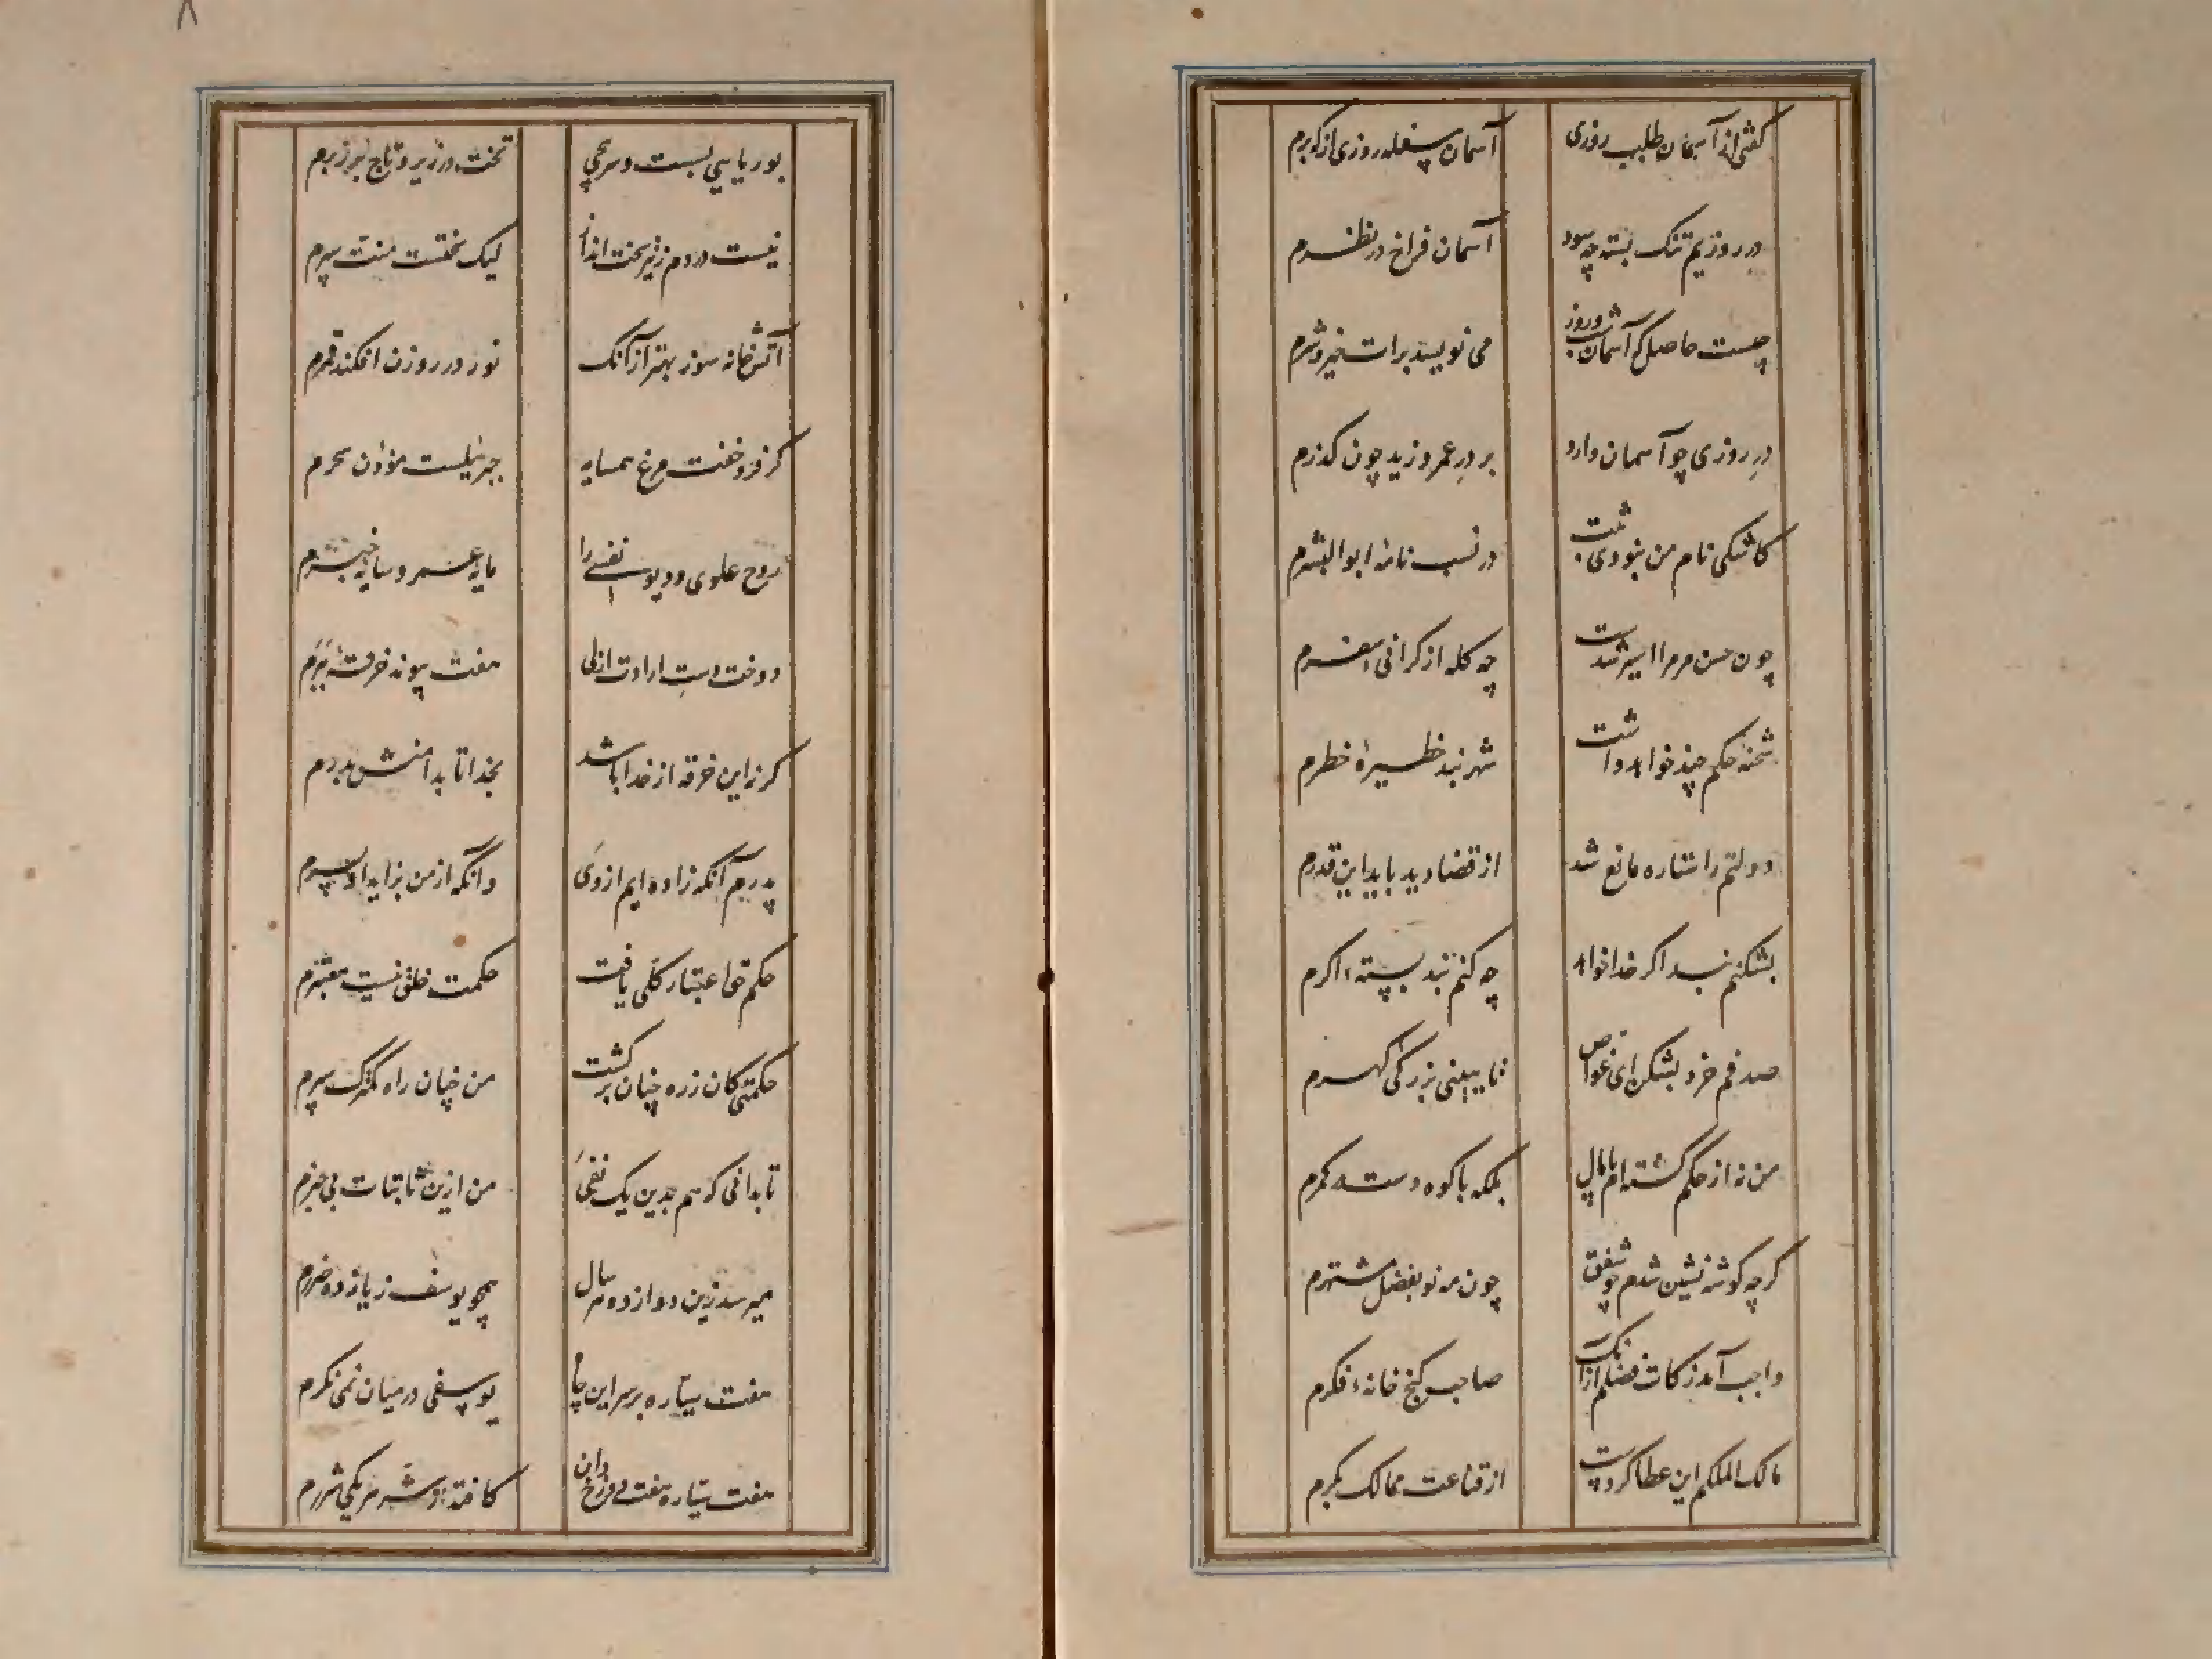 گفتی از آسمان طلب روزی آسمان سفله روزی از که برم
در روزیم تنک بسته چه سود آسمان فراخ در نظرم
چیست حاصل کم آسمان شب و روز می نویسد برات خیر و شرم
در روزی چو آسمان دارد بر در عمر و زید چون گذرم
کاشکی نام من نبودی ثبت در نسب نامهٔ ابوالبشرم
چون من مر مرا اسیر شدست چه کله از کرانی سفرم
شحنهٔ حکم چند خواهد داشت شهربند حظیرهٔ خطرم
دولتم را ستاره مانع شد از قضا دید باید این قدرم
بشکنم بند اگر خدا خواهد چه کنم بند بسته اگرم
صدفم خرد بشکن ای غواص تا ببینی بزرگی گهرم
من نه از حکم گشته ام پامال بلکه با کوه دست در کمرم
کرچه کوشه نشین شدم چو شفق چون مه نو بفضل مشتهرم
واجب آمد زکات فضلم از آنک صاحب گنج خانهٔ فکرم
مالک الملکم این عطا کردست از قناعت ممالک بکرم
۸
بوریایی بست و سرپیچی تخت در زیر و تاج بر زبرم
نیست در دم زنیر تخت انداز لیک سختست منت سپرم
آتش خانه سوز بهتر از آنک نور در روزن افکند قمرم
کر فرو خفت مرغ همسایه جبرئیلست مؤذن سحرم
روح علوی و دیو نفسی را مایه عسر و سایه خیبرم
دوخت دست ارادت ازلی هفت پیوند خرقهٔ بیرم
کر نه این خرقه از خدا باشد بخدا تا بدامنش بدرم
پدرم آنکه زاده ایم از وی وآنکه از من بزاید او پسرم
حکم حق اعتبار کلی یافت حکمت خلق نیست معتبرم
حکمتی کان ز ره چنان برگشت من چنان راه کمترک سپرم
تا بدانی که هم بدین یک نفی من ازین ثابتات بی خبرم
میرسد زین دوازده هر سال همچو یوسف ز یازده ضررم
هفت سیاره بر سر این چاه یوسفی در میان نمی نگرم
هفت سیاره هفت دوزخ دان کافتد از وی شرر مر یکی شررم